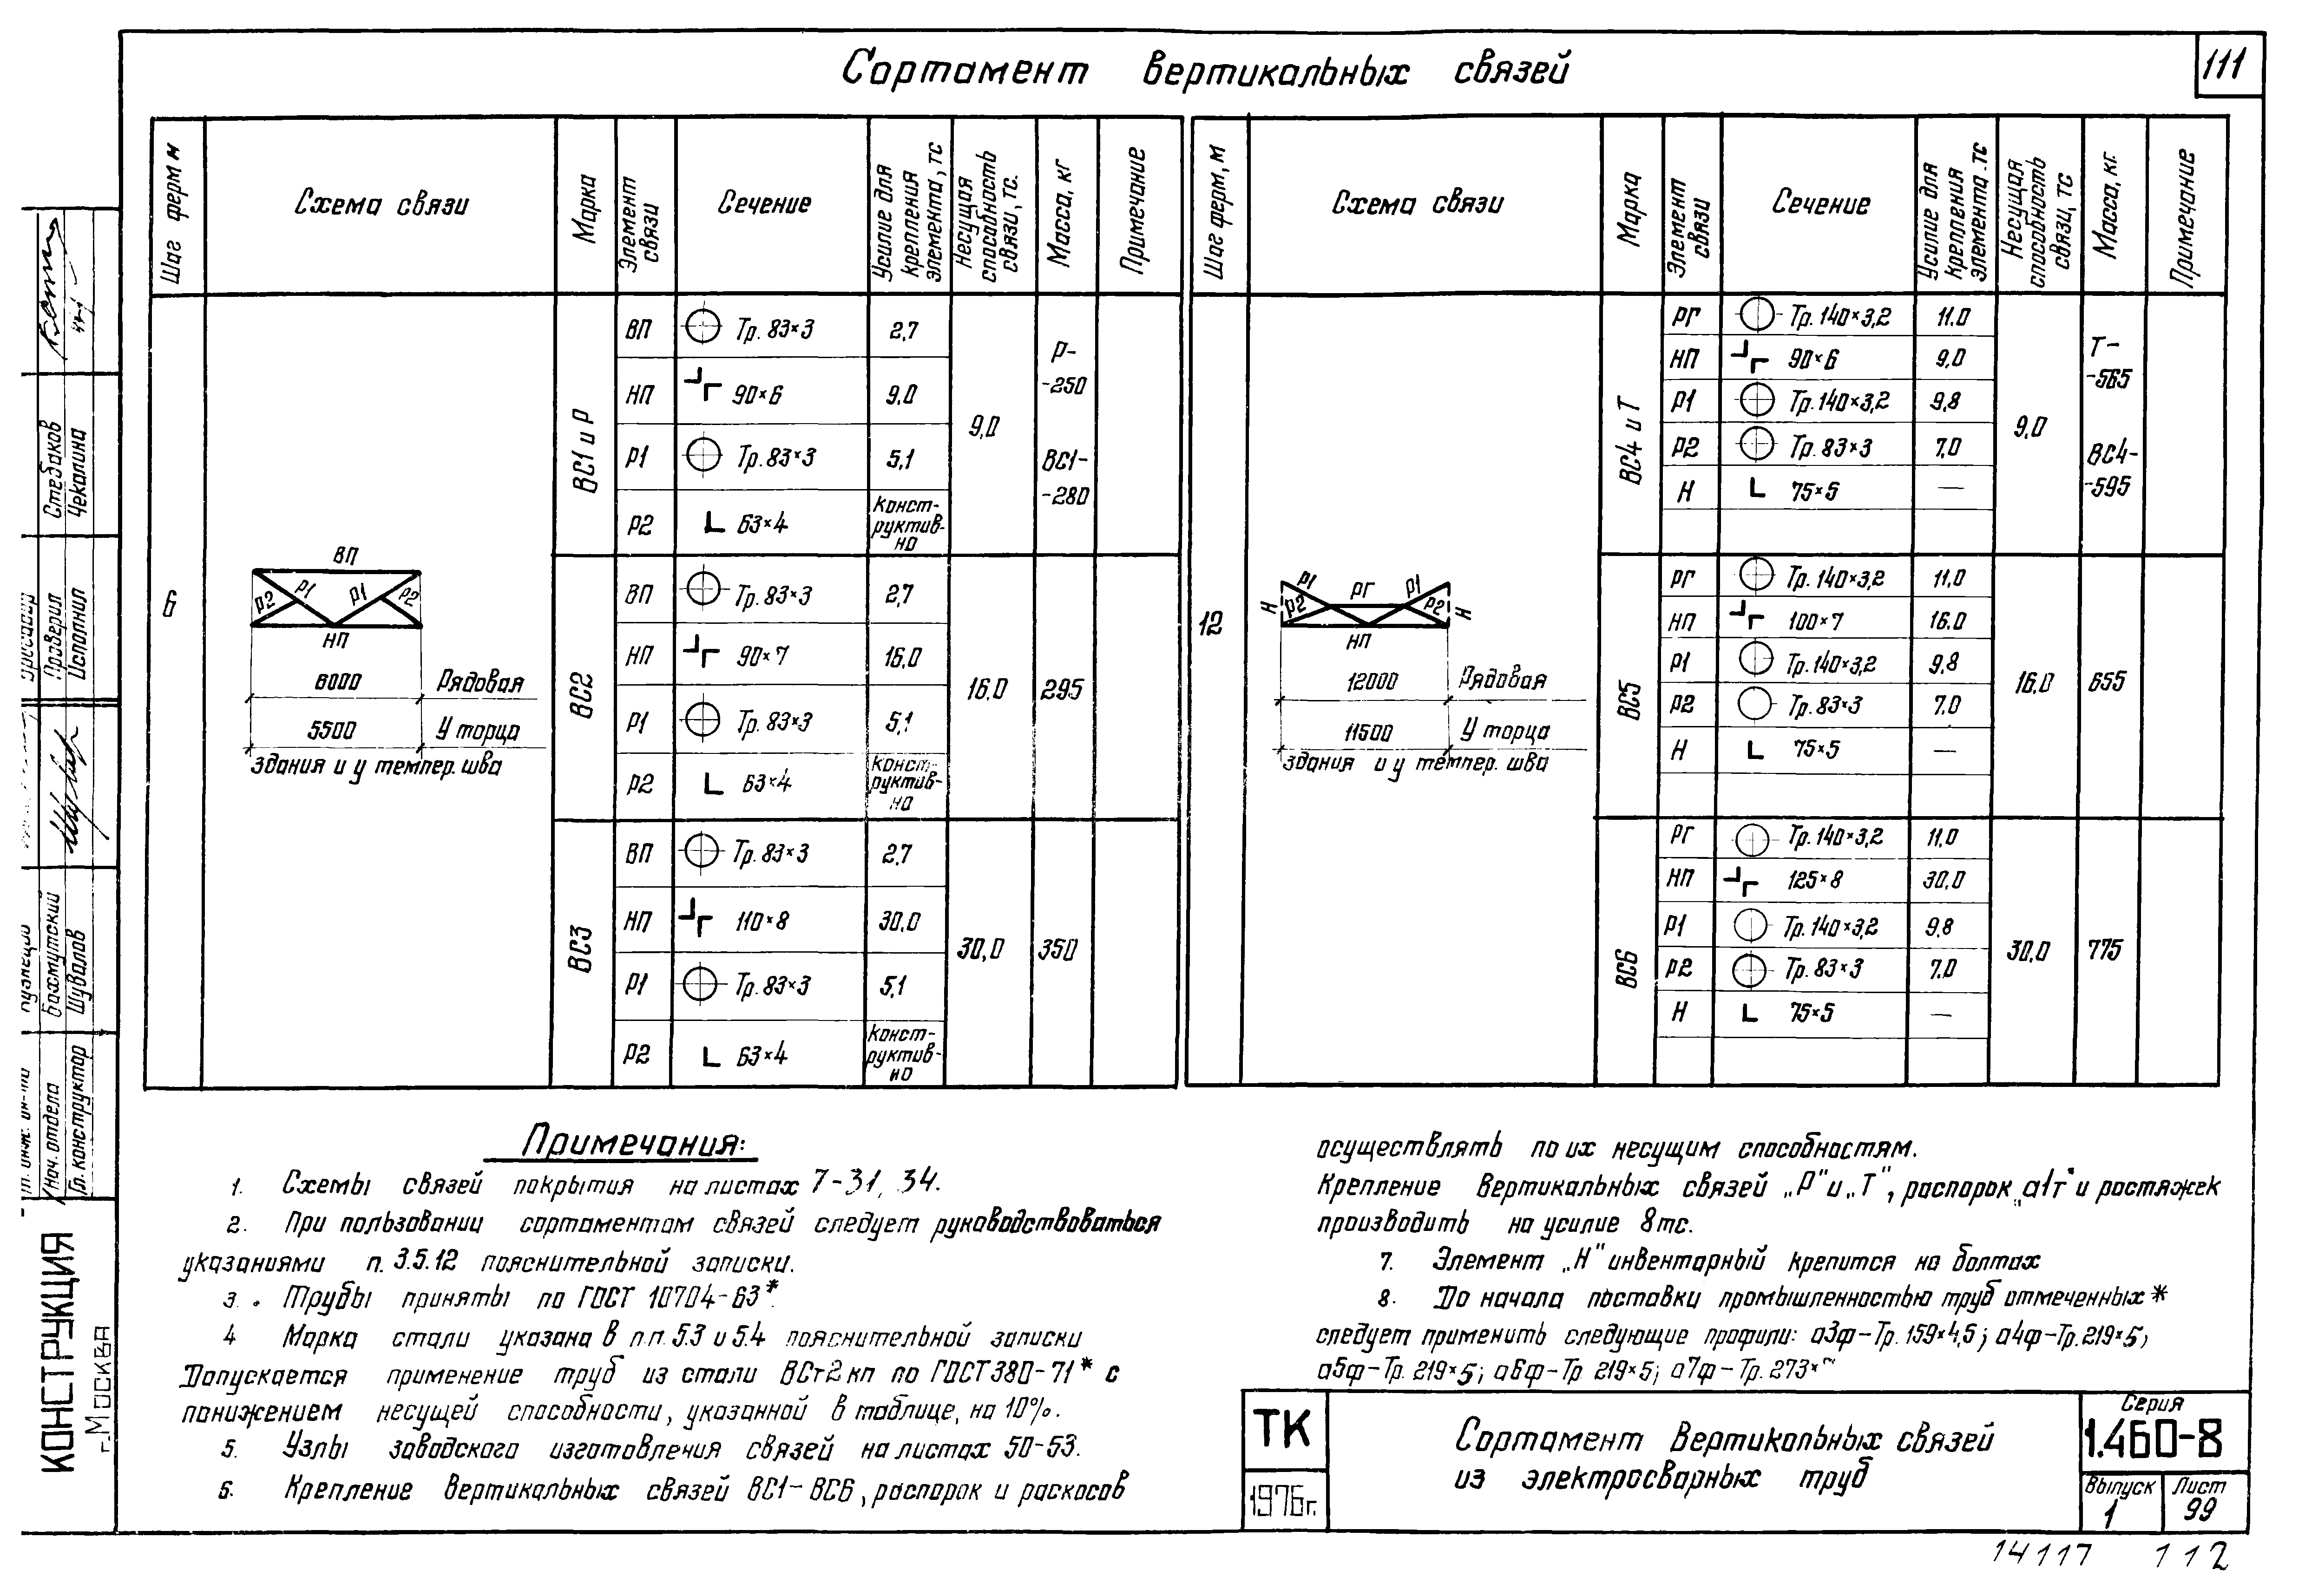 Сортамент вертикальных связей
111
Шаг ферм м
Схема связи
Марка
Элемент связи
Сечение
Усилие для крепления элемента, тс
Несущая способность связи, тс.
Масса, кг
Примечание
6
ВП
Р2 Р1 Р1 Р2
НП
6000 Рядовая
5500 У торца
здания и у темпер. шва
ВС1 и Р
ВП Тр. 83×3 2,7
НП 90×6 9,0
Р1 Тр. 83×3 5,1
Р2 63×4 Конст-
руктив-
но
9,0
Р-
-250
ВС1-
-280
ВС2
ВП Тр. 83×3 2,7
НП 90×7 16,0
Р1 Тр. 83×3 5,1
Р2 63×4 конст-
руктив-
но
16,0
295
ВС3
ВП Тр. 83×3 2,7
НП 110×8 30,0
Р1 Тр. 83×3 5,1
Р2 63×4 конст-
руктив-
но
30,0
350
Шаг ферм, м
Схема связи
Марка
Элемент связи
Сечение
Усилие для крепления элемента. тс
Несущая способность связи, тс
Масса, кг.
Примечание
12
Р1 РГ Р1
Н Р2 Р2 Н
НП
12000 Рядовая
11500 У торца
здания и у темпер. шва
ВС4 и Т
РГ Тр. 140×3,2 11.0
НП 90×6 9,0
Р1 Тр. 140×3,2 9,8
Р2 Тр. 83×3 7,0
Н 75×5 —
9,0
Т-
-565
ВС4-
-595
ВС5
РГ Тр. 140×3,2 11,0
НП 100×7 16.0
Р1 Тр. 140×3,2 9,8
Р2 Тр. 83×3 7,0
Н 75×5 —
16,0
655
ВС6
РГ Тр. 140×3,2 11,0
НП 125×8 30,0
Р1 Тр. 140×3,2 9,8
Р2 Тр. 83×3 7,0
Н 75×5 —
30,0
775
Примечания:
1. Схемы связей покрытия на листах 7-31, 34.
2. При пользовании сортаментом связей следует руководствоваться
указаниями п. 3.5.12 пояснительной записки.
3. Трубы приняты по ГОСТ 10704-63*
4 Марка стали указана в п.п. 5.3 и 5.4 пояснительной записки
Допускается применение труб из стали ВСт2кп по ГОСТ 380-71* с
понижением несущей способности, указанной в таблице, на 10%.
5. Узлы заводского изготовления связей на листах 50-53.
6. Крепление вертикальных связей ВС1-ВС6, распорок и раскосов
осуществлять по их несущим способностям.
Крепление вертикальных связей „Р" и „Т", распорок „а1т" и растяжек
производить на усилие 8тс.
7. Элемент „Н" инвентарный крепится на болтах
8. До начала поставки промышленностью труб отмеченных *
следует применить следующие профили: а3ф-Тр. 159×4,5; а4ф-Тр. 219×5;
а5ф-Тр. 219×5; а6ф-Тр 219×5; а7ф-Тр. 273×
ТК
1976г.
Сортамент вертикальных связей
из электросварных труб
Серия
1.460-8
Выпуск
1
Лист
99
14117 112
Стебаков
Чекалина
Проверил
Исполнил
Бахмутский
Шувалов
Нач. отдела
Гл. конструктор
КОНСТРУКЦИЯ
г. Москва